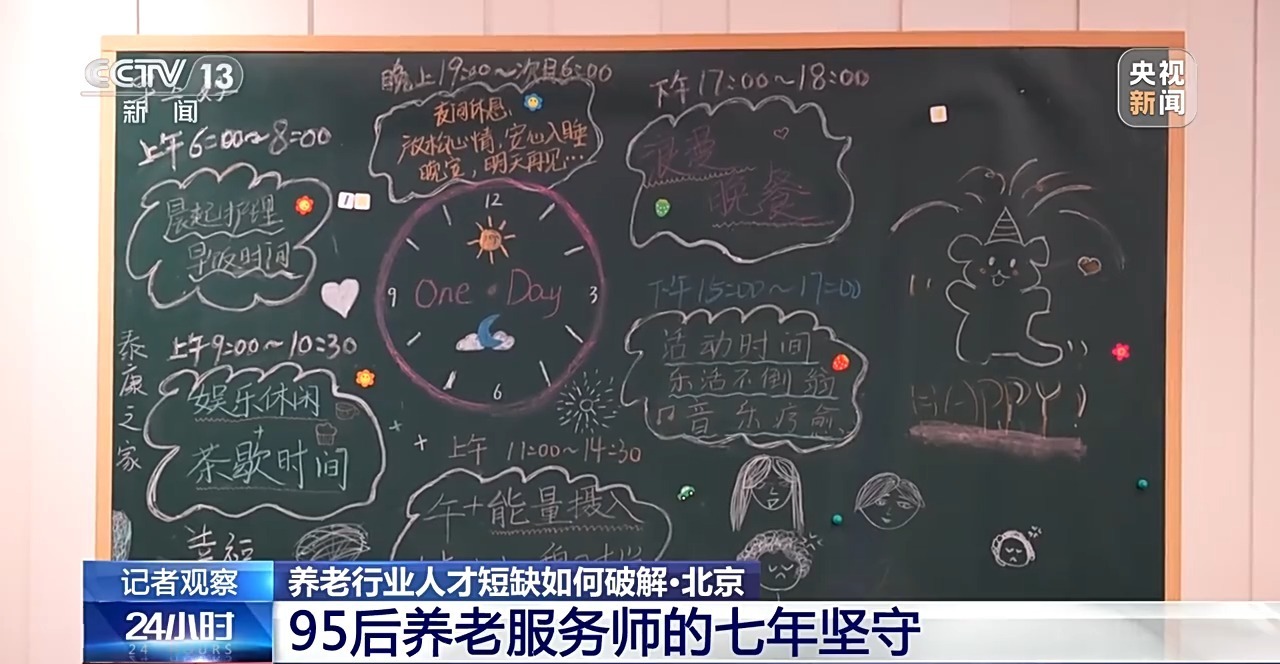 CCTV 13
新闻
央视
新闻
晚上19:00~次日6:00
夜间休息:
放松心情,安心入睡
晚安,明天再见…
下午17:00~18:00
浪漫
晚餐
上午6:00~8:00
晨起护理
早饭时间
12
9
One Day
3
6
下午15:00~17:00
活动时间
乐活不倒翁
音乐疗愈
泰康之家
上午9:00~10:30
娱乐休闲
+
茶歇时间
上午 11:00~14:30
午+能量摄入
幸福
HAPPY!
记者观察
养老行业人才短缺如何破解·北京
24小时
24 HOURS
95后养老服务师的七年坚守